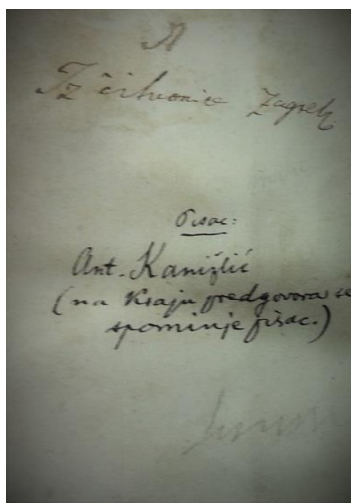 A
Iz čitaonice Zagreb
Pisac:
Ant. Kanižlić
(na kraju predgovora se
spominje pisac.)